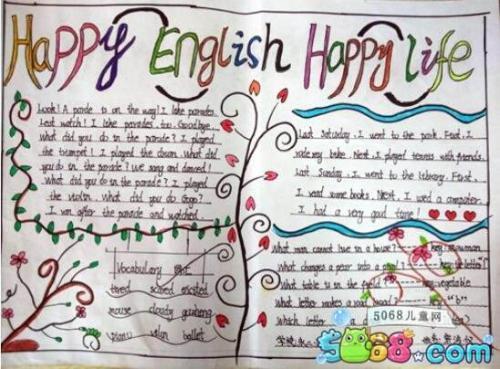 Happy English Happy life
Look! A parade is on the way! I like parades.
Let's watch! I like parades, too. Goodbye.
What did you do in the parade? I played
the trumpet! I played the drum. What did
you do in the parade? We sang and danced!
What did you do in the parade? I played
the violin. What did you do
I ran after the parade and watched.
Vocabulary
tired scared excited
mouse cloudy
piano violin ballet
Last Saturday. I went to the park. First. I
rode my bike. Next. I played tennis with friends.
Last Sunday. I went to the library. First. I
read some books. Next. I used a computer.
I had a very good time!
What man cannot live in a house?
What changes a pear into a
What table is in the vegetable
What letter makes a road broad? "b"
Which letter is a
5068儿童网
5068.com